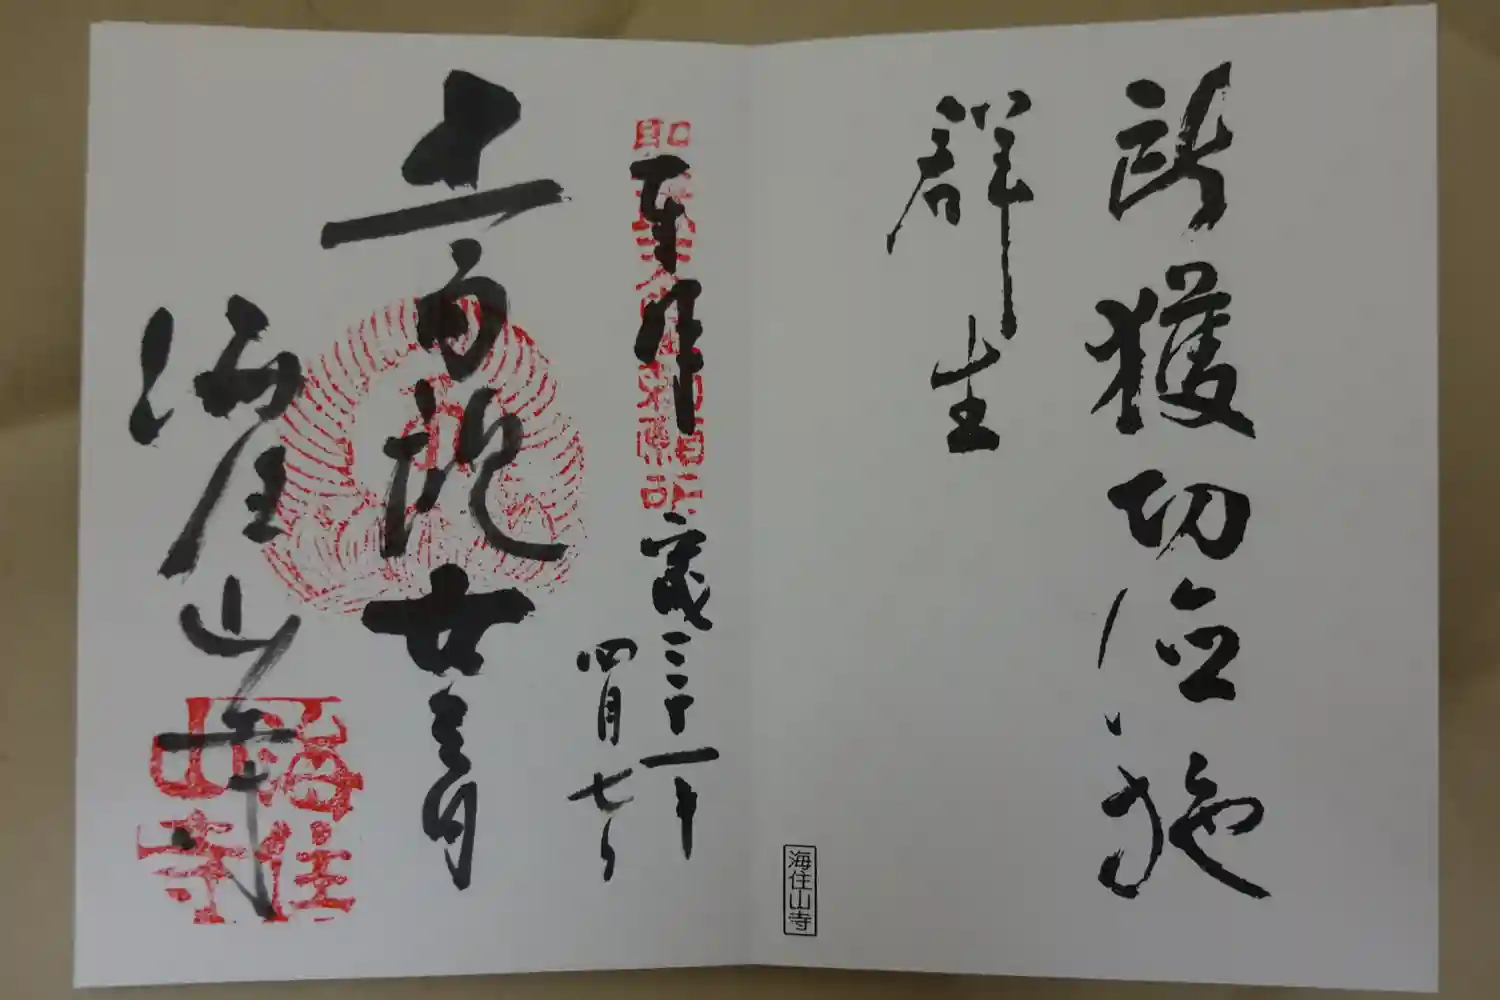 所獲功徳施
群生
海住山寺
奉拝
平成三十一年
四月七日
十一面観世音
海住山寺
海住山寺